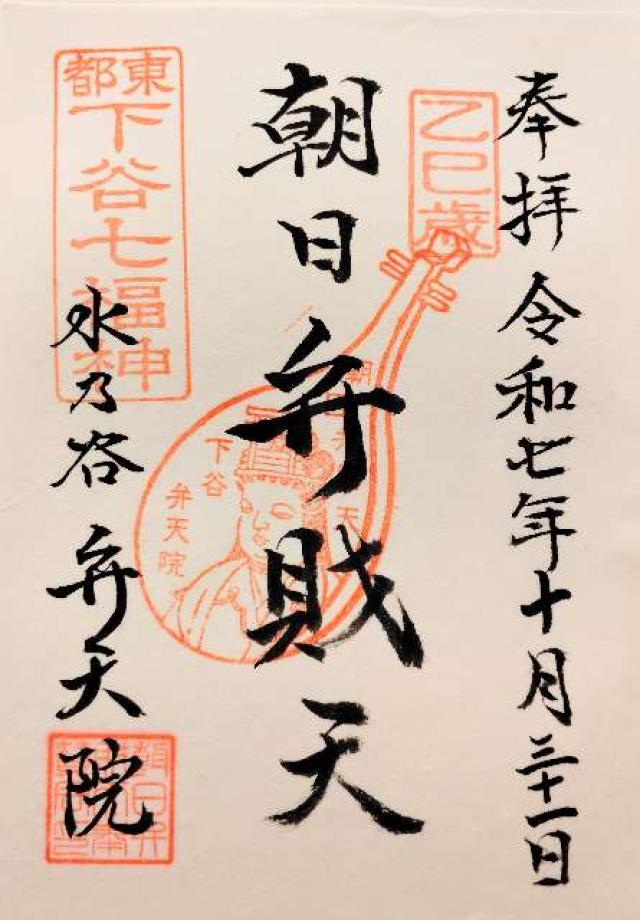 奉拝 令和七年十月三十一日
乙巳歳
朝日弁財天
下谷
弁天院
東都
下谷七福神
水乃谷 弁天院